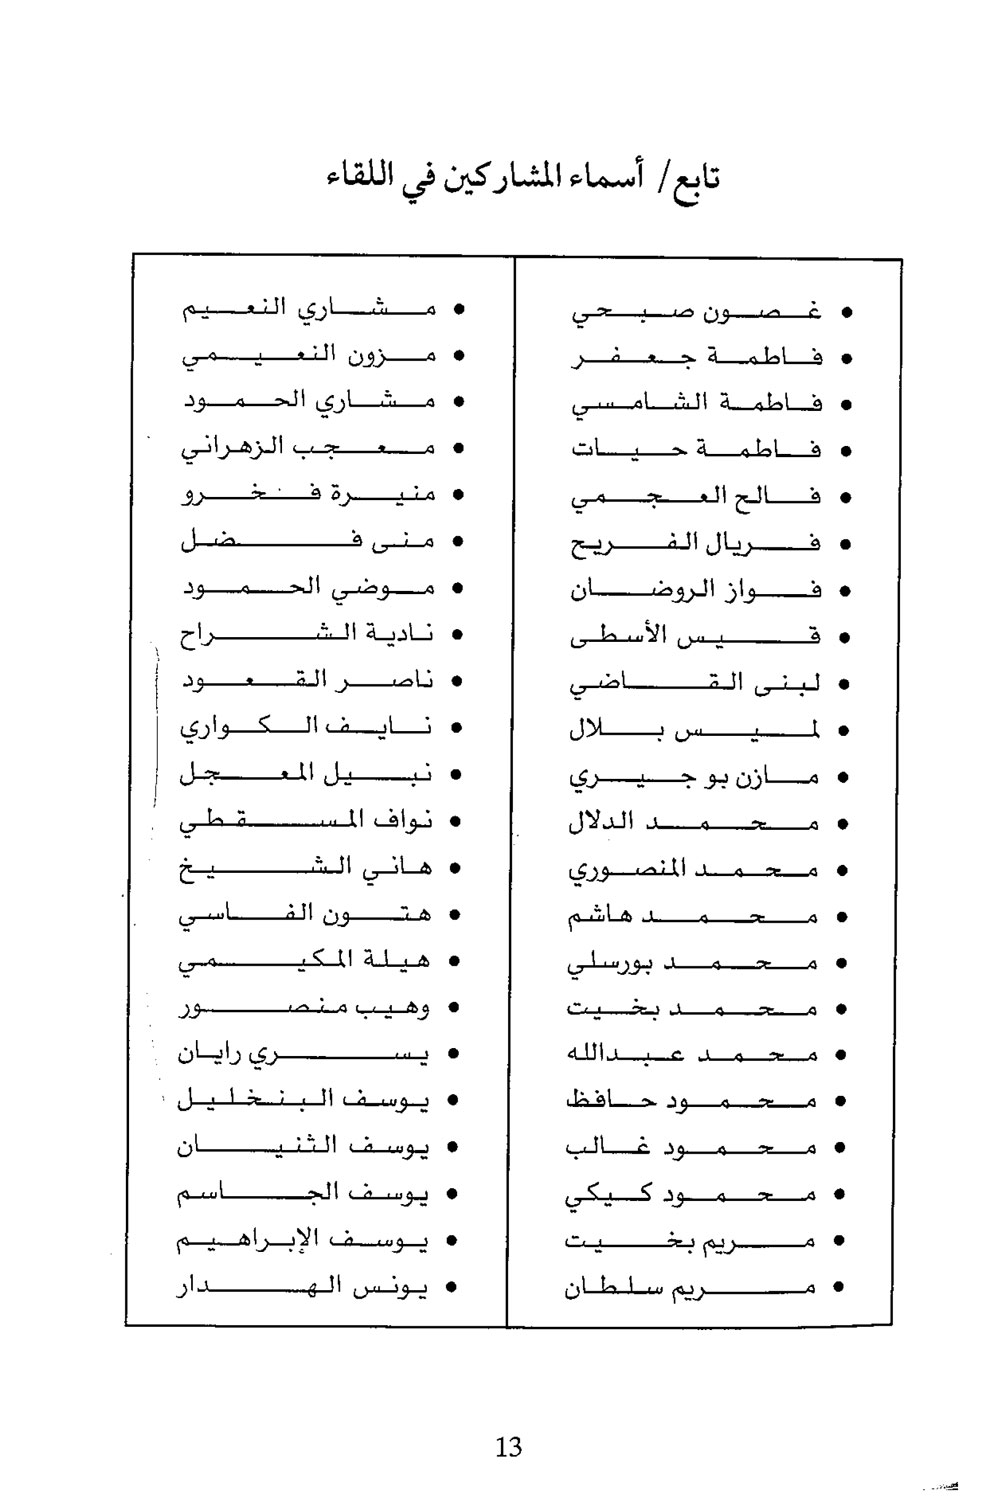 تابع/ أسماء المشاركين في اللقاء
• غصون صبحي
• فاطمة جعفر
• فاطمة الشامسي
• فاطمة حيات
• فالح العجمي
• فريال الفريح
• فواز الروضان
• قيس الأسطى
• لبنى القاضي
• لميس بلال
• مازن بو جيري
• محمد الدلال
• محمد المنصوري
• محمد هاشم
• محمد بورسلي
• محمد بخيت
• محمد عبدالله
• محمود حافظ
• محمود غالب
• محمود كيكي
• مريم بخيت
• مريم سلطان
• مشاري النعيم
• مزون النعيمي
• مشاري الحمود
• معجب الزهراني
• منيرة فخرو
• منى فضل
• موضي الحمود
• نادية الشراح
• ناصر القعود
• نايف الكواري
• نبيل المعجل
• نواف المسقطي
• هاني الشيخ
• هتون الفاسي
• هيلة المكيمي
• وهيب منصور
• يسري رايان
• يوسف البنخليل
• يوسف الثنيان
• يوسف الجاسم
• يوسف الإبراهيم
• يونس الهدار
13